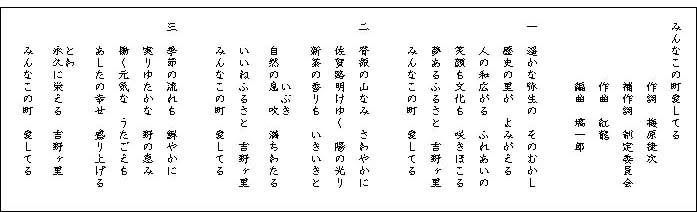 みんなこの町愛してる
作詞　梅原捷次
補作詞　制定委員会
作曲　紅龍
編曲　橘一郎
一　遥かな弥生の　そのむかし
歴史の里が　よみがえる
人の和広がる　ふれあいの
笑顔も文化も　咲きほこる
夢あるふるさと　吉野ヶ里
みんなこの町　愛してる
二　脊振の山なみ　さわやかに
佐賀路明けゆく　陽の光り
新茶の香りも　いきいきと
いぶき
自然の息吹　満ちわたる
いいねふるさと　吉野ヶ里
みんなこの町　愛してる
三　季節の流れも　鮮やかに
実りゆたかな　野の恵み
働く元気な　うたごえも
あしたの幸せ　盛り上げる
とわ
永久に栄える　吉野ヶ里
みんなこの町　愛してる